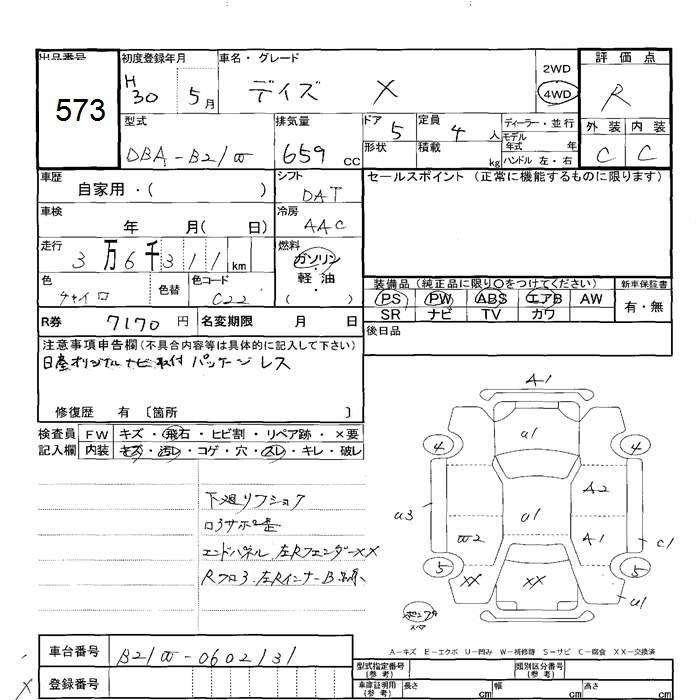 出品番号 573
初度登録年月 H30 5月
車名・グレード デイズ X
2WD
4WD
評価点 R
外装 内装
C C
型式 DBA-B21W
排気量 659 cc
ドア 5
定員 4 人
形状
積載 kg
ディーラー・並行
モデル年式 年
ハンドル 左・右
車歴 自家用・( )
シフト DAT
セールスポイント (正常に機能するものに限ります)
車検 年 月( 日)
冷房 AAC
走行 3万6千311km
燃料 ガソリン・軽油 ( )
色 チャイロ
色替
色コード C22
装備品 (純正品に限り○をつけてください)
新車保証書
PS PW ABS エアB AW
有・無
SR ナビ TV カワ
R券 7170円
名変期限 月 日
後日品
注意事項申告欄(不具合内容等は具体的に記入して下さい)
日産オリジナルナビ取付パッケージレス
修復歴 有 〔箇所 〕
検査員 FW キズ・飛石・ヒビ割・リペア跡・×要
記入欄 内装 キズ・汚レ・コゲ・穴・スレ・キレ・破レ
下廻リフショク
エンドパネル、左Rフェンダー××
A1
u1
4 4
A2
u3
u1
W2
A1
C1
5 5
XX
XX
u1
A-キズ E-エクボ U-凹み W-補修跡 S-サビ C-腐食 XX-交換済
車台番号 B21W-0602131
登録番号
型式指定番号(参考)
類別区分番号(参考)
車庫証明用(参考) 長さ cm 幅 cm 高さ cm